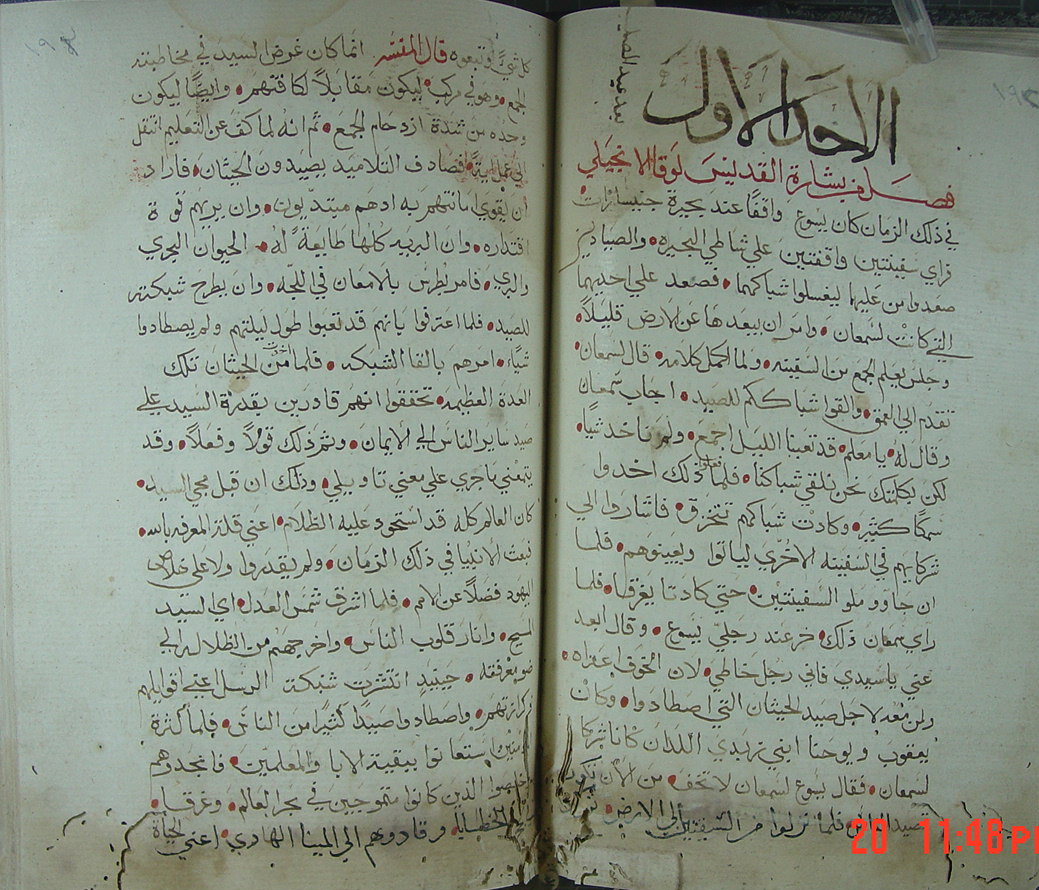 الاحد الاول
بعد عيد الصليب
فصل من بشارة القديس لوقا الانجيلي
في ذلك الزمان كان يسوع واقفًا عند بحيرة جنيسارات
فراي سفينتين واقفتين علي شاطي البحيره والصيادين
صعدوا من عليها ليغسلوا شباكهما فصعد علي احديهما
التي كانت لسمعان وامر ان يبعدها عن الارض قليلًا
وجلس يعلم الجمع من السفينه ولما اكمل كلامه قال لسمعان
تقدم الي العمق والقوا شباككم للصيد اجاب سمعان
وقال له يا معلم قد تعبنا الليل اجمع ولم ناخد شيًا
لكن بكلمتك نحن نلقي شباكنا فلما فعلوا ذلك اخدوا
سمكًا كثير وكادت شباكهم تتخرق فاشاروا الي
شركايهم في السفينه الاخري لياتوا ويعينوهم فلما
ان جاوو ملو السفينتين حتي كادتا يغرقا فلما
راي سمعان ذلك خر عند رجلي يسوع وقال ابعد
عني يا سيدي فاني رجل خاطي لان الخوف اعتراه
ومن معه لاجل صيد الحيتان التي اصطادوا وكان
يعقوب ويوحنا ابني زبدي اللدان كانا شركا
لسمعان فقال يسوع لسمعان لا تخف من الان تكون
تصيد الناس فلما نزلوا من السفينتين الي الارض تركوا
كل شي وتبعوه قال المفسّر انما كان غرض السيد في مخاطبته
الجمع وهو في مركب ليكون مقابلًا لكافتهم وايضًا ليكون
وحده من شدة ازدحام الجمع ثم انه لما كف عن التعليم انتقل
الي فصادف التلاميد يصيدون الحيتان فاراد
ان يقوي امانتهم به ادهم مبتديون وان يريهم قوة
اقتداره وان البريه كلها طايعة له الحيوان البحري
والبري فامر بطرس بالامعان في اللجه وان يطرح شبكته
للصيد فلما اعترفوا بانهم قد تعبوا طول ليلتهم ولم يصطادوا
شيًا امرهم بالقا الشبكه فلما من الحيتان تلك
العدة العظيمه تحققوا انهم قادرين بقدرة السيد علي
صيد ساير الناس الي الايمان وتم ذلك قولًا وفعلًا وقد
يتجه ما جري علي معني تاويلي وذلك ان قبل مجي السيد
كان العالم كله قد استحود عليه الظلام اعني قلة المعرفه بالله
فبعث الانبيا في ذلك الزمان ولم يقدروا ولا علي خلاص
اليهود فضلًا عن الامم فلما اشرق شمس العدل اي السيد
المسيح وانار قلوب الناس واخرجهم من الظلاله الي
ضو معرفته حينيد انتشرت شبكة الرسل اعني اقوايلهم
كرازتهم واصطادوا صيدًا كثيرًا من الناس فلما كثرة
استعانوا ببقية الابا والمعلمين فانجدوهم
الذين كانوا متموجين في بحر العالم وغرقا
وقادوهم الي المينا الهادي اعني الحياة